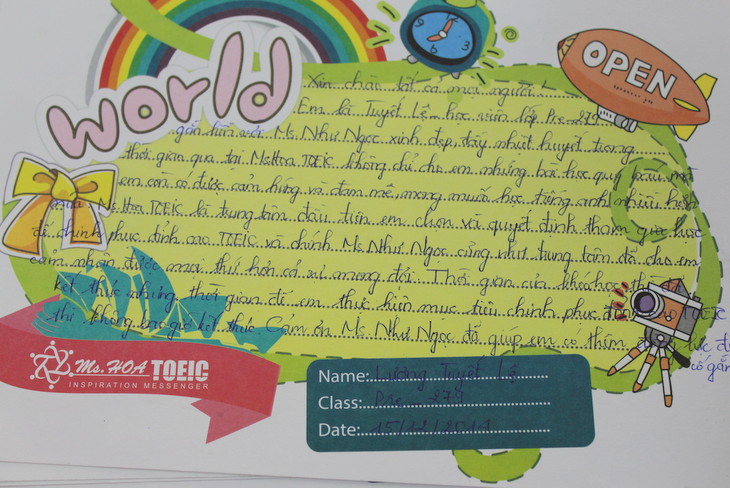 world
OPEN
Xin chào tất cả mọi người!
Em là Tuyết Lệ, học viên lớp Pre 279
gắn liền với Ms Như Ngọc xinh đẹp, đầy nhiệt huyết trong
thời gian qua tại MsHoa TOEIC không chỉ cho em những bài học quý báu mà
em còn có được cảm hứng và đam mê, mong muốn học tiếng anh nhiều hơn
nữa. Ms Hoa TOEIC là trung tâm đầu tiên em chọn và quyết định tham gia
để chinh phục đỉnh cao TOEIC và chính Ms Như Ngọc cũng như trung tâm đã cho em
cảm nhận được mọi thứ hơn cả sự mong đợi. Thời gian của khóa học thì đã
kết thúc nhưng thời gian để em thực hiện mục tiêu chinh phục TOEIC
thì không bao giờ kết thúc. Cám ơn Ms Như Ngọc đã giúp em có thêm động lực để
cố gắng
Ms. HOA TOEIC
INSPIRATION MESSENGER
Name: Lương Tuyết Lệ
Class: Pre 279
Date: 15/12/